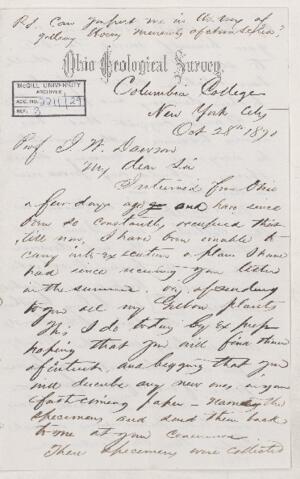 P.S. Can you put me in the way of
getting Avery
Ohio Geological Survey
McGILL UNIVERSITY
ARCHIVES
ACC. NO. 2211/29
REF. 3
Columbia College
New York City
Oct 28th 1870
Prof. J W. Dawson
My dear Sir
I returned from Ohio
a few days ago and have since
been so constantly occupied that
till now, I have been unable to
carry into execution a plan I have
had since receiving your letter
in the summer of sending
to you all my plants
This I do today by Ex press
hoping that you will find them
of interest and begging that you
will describe any new ones in your
forthcoming paper - name the
specimens and send them back
to me at your convenience
These specimens were collected